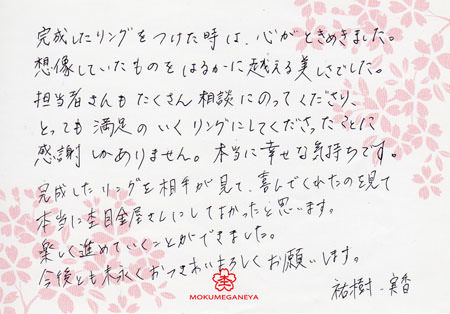 完成したリングをつけた時は、心がときめきました。
想像していたものをはるかに越える美しさでした。
担当者さんもたくさん相談にのってくださり、
とっても満足のいくリングにしてくださったことに
感謝しかありません。本当に幸せな気持ちです。
完成したリングを相手が見て、喜んでくれたのを見て
本当に杢目金屋さんにしてよかったと思います。
楽しく進めていくことができました。
今後とも末永くおつきあいよろしくお願いします。
祐樹・実香
MOKUMEGANEYA